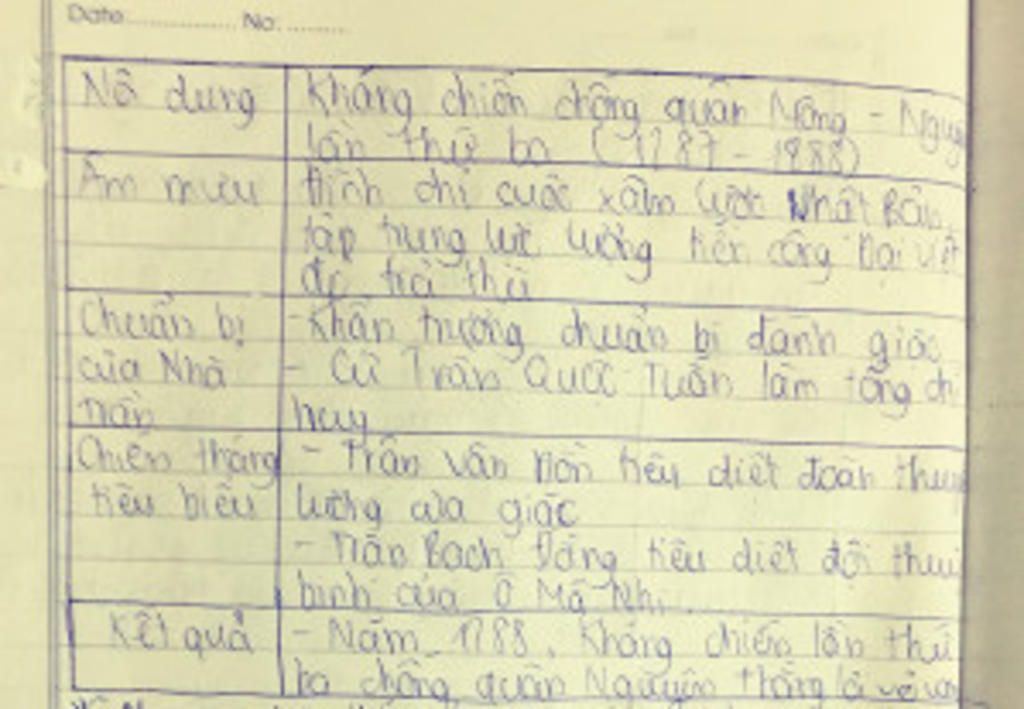 Date: No:
Nô dung
Kháng chiến chống quân Mông - Nguyên
lần thứ ba (1287 - 1288)
Âm mưu
Đình chỉ cuộc xâm lược Nhật Bản,
tập trung lực lượng tiến công Đại Việt
để trả thù
Chuẩn bị
của Nhà
Trần
- Khẩn trương chuẩn bị đánh giặc
- Cử Trần Quốc Tuấn làm tổng chỉ
huy
Chiến thắng
tiêu biểu
- Trận Vân Đồn tiêu diệt đoàn thuyền
lương của giặc
- Trận Bạch Đằng tiêu diệt đội thuỷ
binh của Ô Mã Nhi.
Kết quả
- Năm 1288, kháng chiến lần thứ
ba chống quân Nguyên thắng lợi vẻ vang